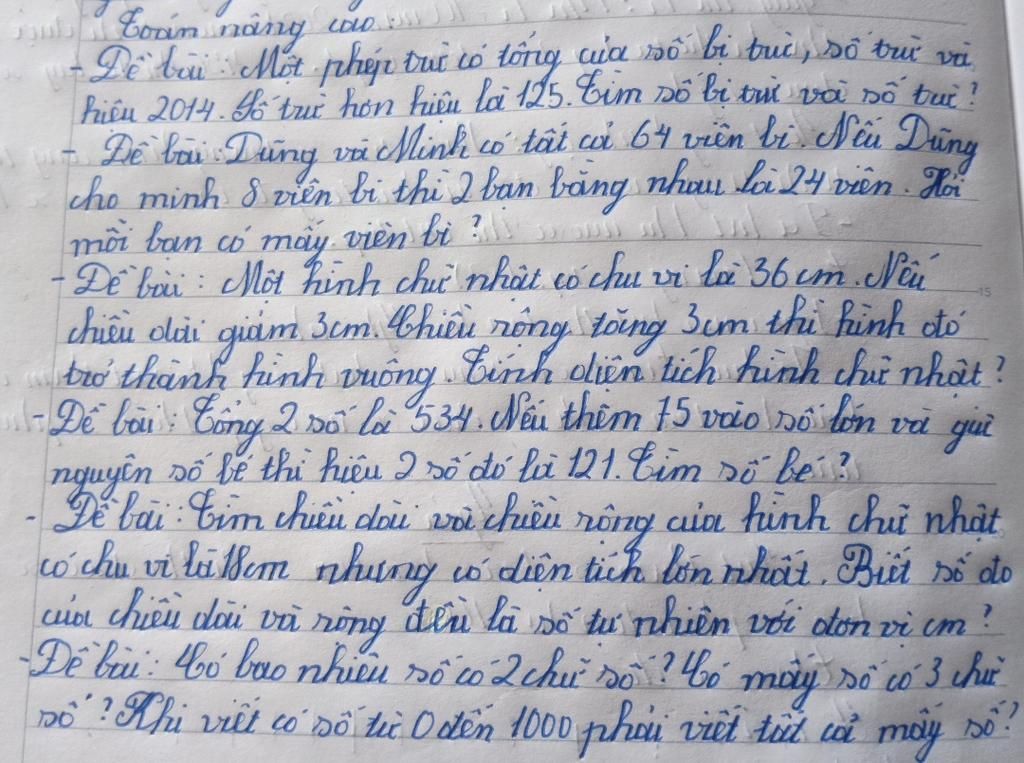 Toán nâng cao
- Đề bài: Một phép trừ có tổng của số bị trừ, số trừ và
hiệu 2014. Số trừ hơn hiệu là 125. Tìm số bị trừ và số trừ?
- Đề bài: Dũng và Minh có tất cả 64 viên bi. Nếu Dũng
cho minh 8 viên bi thì 2 bạn bằng nhau là 24 viên. Hỏi
mỗi bạn có mấy viên bi?
- Đề bài: Một hình chữ nhật có chu vi là 36 cm. Nếu
chiều dài giảm 3cm. Chiều rộng tăng 3cm thì hình đó
trở thành hình vuông. Tính diện tích hình chữ nhật?
- Đề bài: Tổng 2 số là 534. Nếu thêm 75 vào số lớn và giữ
nguyên số bé thì hiệu 2 số đó là 121. Tìm số bé?
- Đề bài: Tìm chiều dài và chiều rộng của hình chữ nhật
có chu vi là 18cm nhưng có diện tích lớn nhất. Biết số đo
của chiều dài và rộng đều là số tự nhiên với đơn vị cm?
- Đề bài: Có bao nhiêu số có 2 chữ số? Có mấy số có 3 chữ
số? Khi viết có số từ 0 đến 1000 phải viết tất cả mấy số?